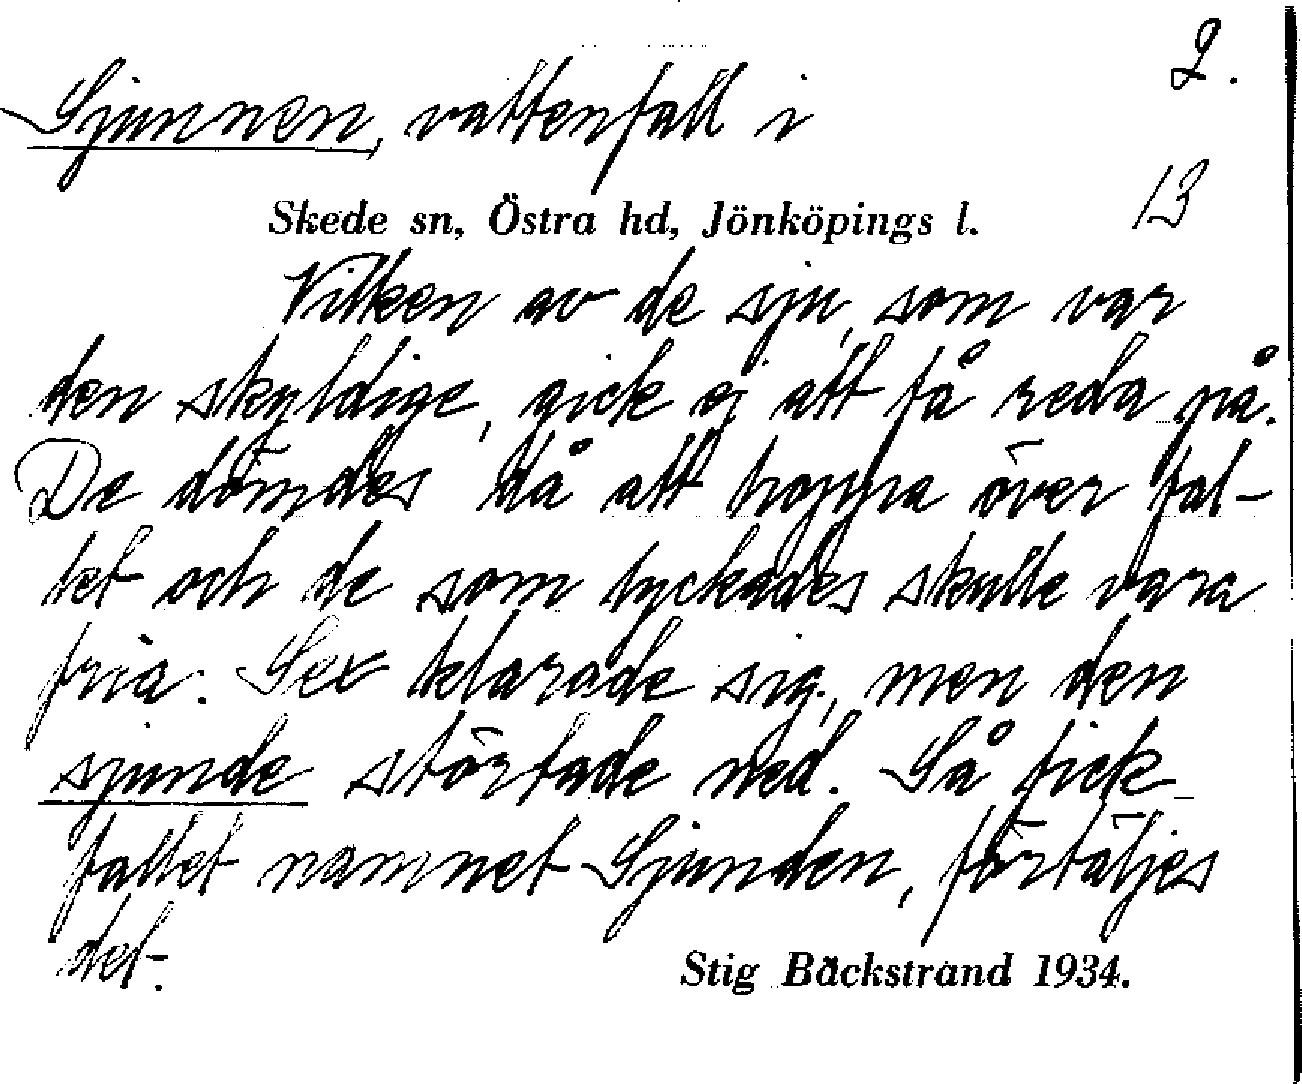 2.
Sjunnen, vattenfall i
13
Skede sn, Östra hd, Jönköpings l.
Vilken av de sju, som var
den skyldige, gick ej att få reda på.
De dömdes då att hoppa över fal-
let och de som lyckades skulle vara
fria. Sex klarade sig, men den
sjunde störtade ned. Så fick
fallet namnet Sjunden, förtäljes
det.
Stig Bäckstrand 1934.